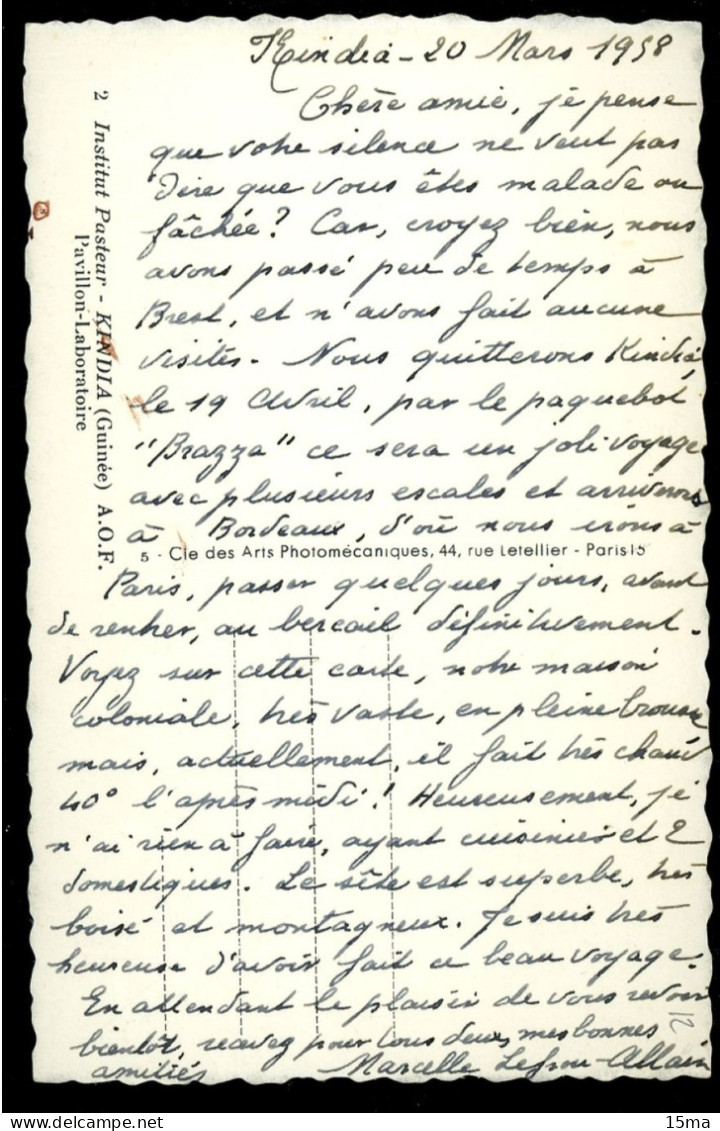 Kindia - 20 Mars 1958
Chère amie, je pense
que votre silence ne veut pas
dire que vous êtes malade ou
fâchée? Car, croyez bien, nous
avons passé peu de temps à
Brest, et n'avons fait aucune
visites. Nous quitterons Kindia,
le 19 Avril, par le paquebot
"Brazza" ce sera un joli voyage
avec plusieurs escales et arriverons
à Bordeaux, d'où nous irons à
Paris, passer quelques jours, avant
de rentrer, au bercail définitivement.
Voyez sur cette carte, notre maison
coloniale, très vaste, en pleine brousse
mais, actuellement, il fait très chaud
40° l'après midi! Heureusement, je
n'ai rien à faire, ayant cuisinier et 2
domestiques. Le site est superbe, très
boisé et montagneux. Je suis très
heureuse d'avoir fait ce beau voyage.
En attendant le plaisir de vous revoir
bientôt, recevez pour tous deux, mes bonnes
amitiés Marcelle -Allain
12
2 Institut Pasteur - KINDIA (Guinée) A.O.F.
Pavillon-Laboratoire
5 - Cie des Arts Photomécaniques, 44, rue Letellier - Paris 15
15ma